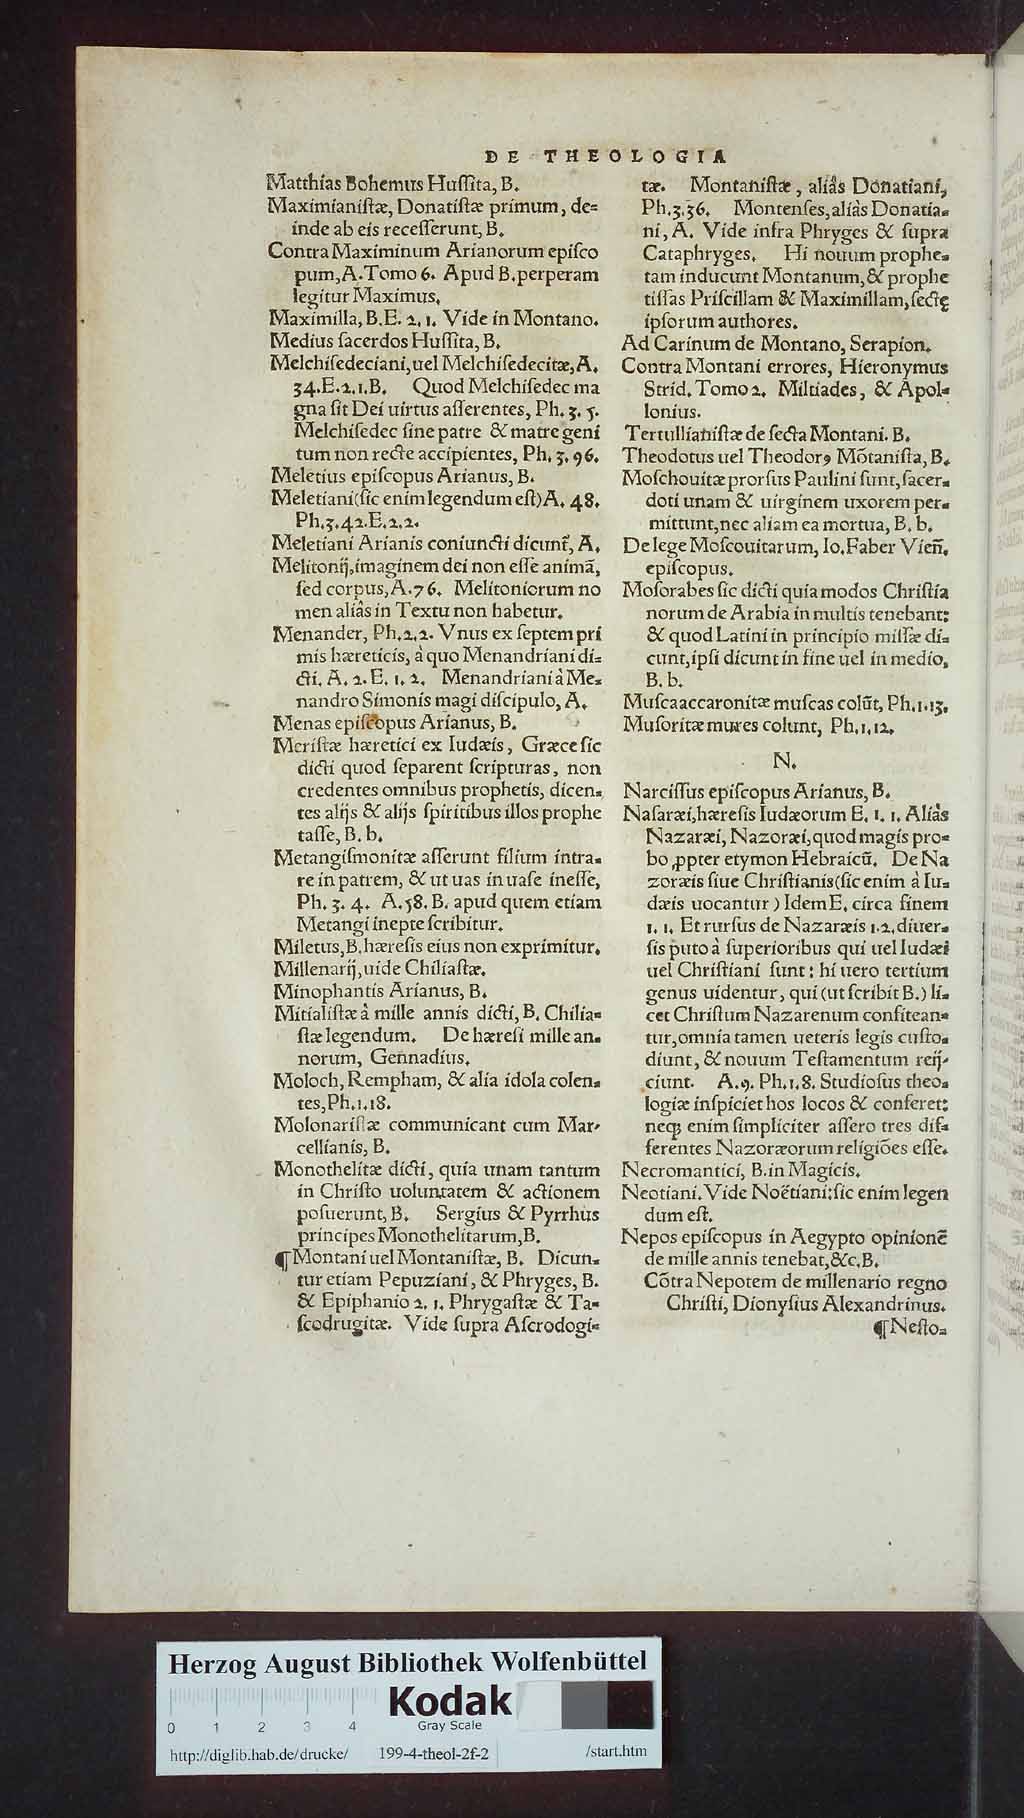 DE THEOLOGIA
Matthías Bohemus Huſſita, B.
Maximianiſtæ, Donatiſtæ primum, de=
inde ab eis receſſerunt, B.
Contra Maximinum Arianorum epiſco
pum, A. Tomo 6. Apud B. perperam
legitur Maximus.
Maximilla, B. E. 2. 1. Vide in Montano.
Medius ſacerdos Huſſita, B.
Melchiſedeciani, uel Melchiſedecitæ, A.
34. E. 2. 1. B. Quod Melchiſedec ma
gna ſit Dei uirtus aſſerentes, Ph. 3. 5.
Melchiſedec ſine patre & matre geni
tum non recte accipientes, Ph. 3. 96.
Meletius epiſcopus Arianus, B.
Meletiani (ſic enim legendum eſt) A. 48.
Ph. 3. 42. E. 2. 2.
Meletiani Arianis coniuncti dicunt̃, A.
Melitonij, imaginem dei non eſſe animā,
ſed corpus, A. 76. Melitoniorum no
men aliâs in Textu non habetur.
Menander, Ph. 2. 2. Vnus ex ſeptem pri
mis hæreticis, à quo Menandriani di=
cti. A. 2. E. 1. 2. Menandriani à Me=
nandro Simonis magi diſcipulo, A.
Menas epiſcopus Arianus, B.
Meriſtæ hæretici ex Iudæis, Græce ſic
dicti quod ſeparent ſcripturas, non
credentes omnibus prophetis, dicen=
tes alijs & alijs ſpiritibus illos prophe
taſſe, B. b.
Metangiſmonitæ aſſerunt filium intra=
re in patrem, & ut uas in uaſe ineſſe,
Ph. 3. 4. A. 58. B. apud quem etiam
Metangi inepte ſcribitur.
Miletus, B. hæreſis eius non exprimitur.
Millenarij, uide Chiliaſtæ.
Minophantis Arianus, B.
Mitialiſtæ â mille annis dicti, B. Chilia=
ſtæ legendum. De hæreſi mille an=
norum, Gennadius.
Moloch, Rempham, & alia idola colen=
tes, Ph. 1. 18.
Molonariſtæ communicant cum Mar=
cellianis, B.
Monothelitæ dicti, quia unam tantum
in Chriſto uoluntatem & actionem
poſuerunt, B. Sergius & Pyrrhus
principes Monothelitarum, B.
¶ Montani uel Montaniſtæ, B. Dicun=
tur etiam Pepuziani, & Phryges, B.
& Epiphanio 2. 1. Phrygaſtæ & Ta=
ſcodrugitæ. Vide ſupra Aſcrodogi=
tæ. Montaniſtæ, aliâs Donatiani,
Ph. 3. 36. Montenſes, aliâs Donatia=
ni, A. Vide infra Phryges & ſupra
Cataphryges. Hi nouum prophe=
tam inducunt Montanum, & prophe
tiſſas Priſcillam & Maximillam, ſectę
ipſorum authores.
Ad Carinum de Montano, Serapion.
Contra Montani errores, Hieronymus
Strid. Tomo 2. Miltiades, & Apol=
lonius.
Tertullianiſtæ de ſecta Montani. B.
Theodotus uel Theodorꝰ Mōtaniſta, B.
Moſchouitæ prorſus Paulini ſunt, ſacer=
doti unam & uirginem uxorem per=
mittunt, nec aliam ea mortua, B. b.
De lege Moſcouitarum, Io. Faber Vien̄.
epiſcopus.
Moſorabes ſic dicti quia modos Chriſtia
norum de Arabia in multis tenebant:
& quod Latini in principio miſſæ di=
cunt, ipſi dicunt in fine uel in medio,
B. b.
Muſcaaccaronitæ muſcas colūt, Ph. 1. 13.
Muſoritæ mures colunt, Ph. 1. 12.
N.
Narciſſus epiſcopus Arianus, B.
Naſaræi, hæreſis Iudæorum E. 1. 1. Aliâs
Nazaræi, Nazoræi, quod magis pro=
bo ꝓpter etymon Hebraicū. De Na
zoræis ſiue Chriſtianis (ſic enim à Iu=
dæis uocantur) Idem E. circa finem
1. 1. Et rurſus de Nazaræis 1. 2. diuer=
ſis puto à ſuperioribus qui uel Iudæi
uel Chriſtiani ſunt: hi uero tertium
genus uidentur, qui (ut ſcribit B.) li=
cet Chriſtum Nazarenum confitean=
tur, omnia tamen ueteris legis cuſto=
diunt, & nouum Teſtamentum reij=
ciunt. A. 9. Ph. 1. 8. Studioſus theo=
logiæ inſpiciet hos locos & conferet:
neqꝫ enim ſimpliciter aſſero tres dif=
ferentes Nazoræorum religiōes eſſe.
Necromantici, B. in Magicis.
Neotiani. Vide Noëtiani: ſic enim legen
dum eſt.
Nepos epiſcopus in Aegypto opinionē
de mille annis tenebat, &c. B.
Cōtra Nepotem de millenario regno
Chriſti, Dionyſius Alexandrinus.
¶ Neſto=
Herzog August Bibliothek Wolfenbüttel
Kodak
Gray Scale
0 1 2 3 4
http://diglib.hab.de/drucke/ 199-4-theol-2f-2 /start.htm